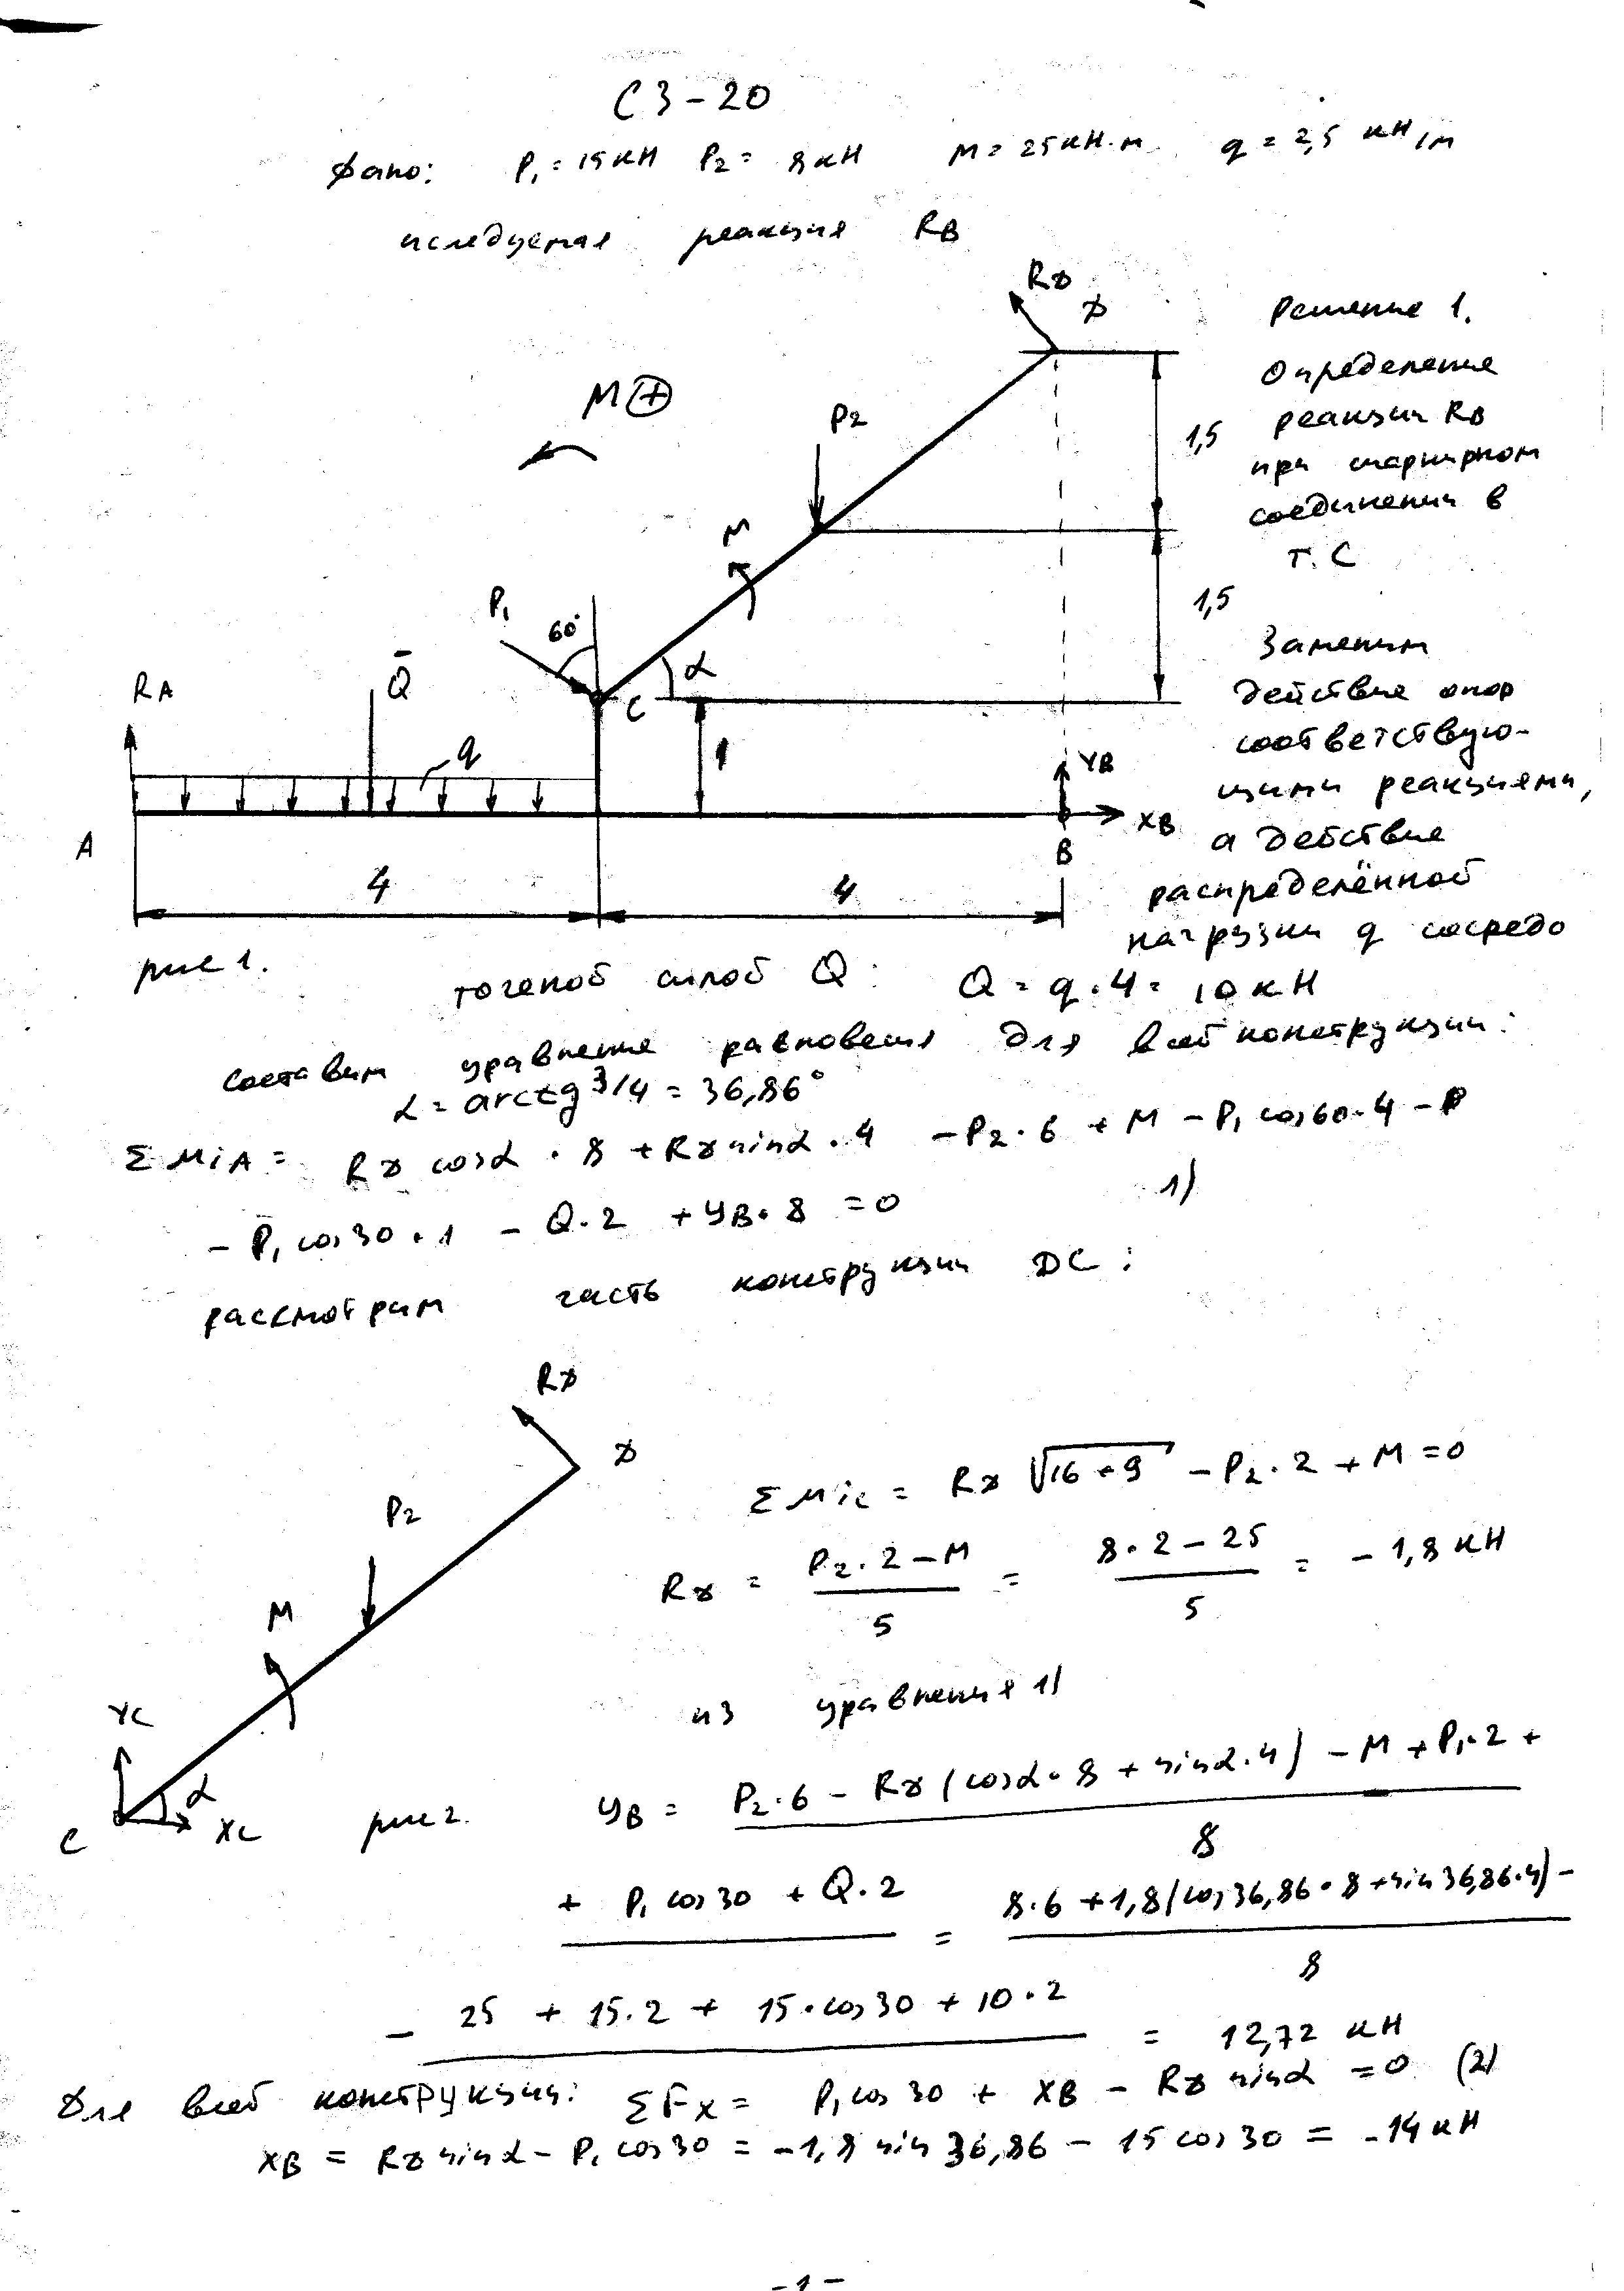 С3-20
Дано: P₁ = 15 кН P₂ = 8 кН M = 25 кН·м q = 2,5 кН/м
иследуемая реакция RB
RD
D
Решение 1.
Определение
реакции RB
при шарнирном
соединении в
т. С
M ⊕
P₂
1,5
M
P₁
60°
1,5
Заменим
действие опор
соответствую-
щими реакциями,
а действие
распределённой
нагрузки q сосредо
RA
Q̄
α
C
q
1
YB
XB
A
B
4
4
рис 1.
точеной силой Q: Q = q·4 = 10 кН
составим уравнение равновесия для всей конструкции:
α = arctg 3/4 = 36,86°
ΣMiA = RD cosα · 8 + RD sinα · 4 - P₂·6 + M - P₁ cos60·4 -
- P₁ cos30·1 - Q·2 + YB·8 = 0 1)
рассмотрим часть конструкции DC:
RD
D
P₂
M
YC
α
C
XC
рис 2.
ΣMiC = RD √16+9 - P₂·2 + M = 0
RD = P₂·2-M / 5 = 8·2-25 / 5 = -1,8 кН
из уравнения 1)
YB = P₂·6 - RD (cosα·8 + sinα·4) - M + P₁·2 + / 8
+ P₁ cos30 + Q·2 = 8·6 + 1,8(cos36,86·8 + sin36,86·4) - / 8
- 25 + 15·2 + 15·cos30 + 10·2 = 12,72 кН
Для всей конструкции: ΣFx = P₁ cos30 + XB - RD sinα = 0 (2)
XB = RD sinα - P₁ cos30 = -1,8 sin 36,86 - 15 cos30 = -14 кН
-1-